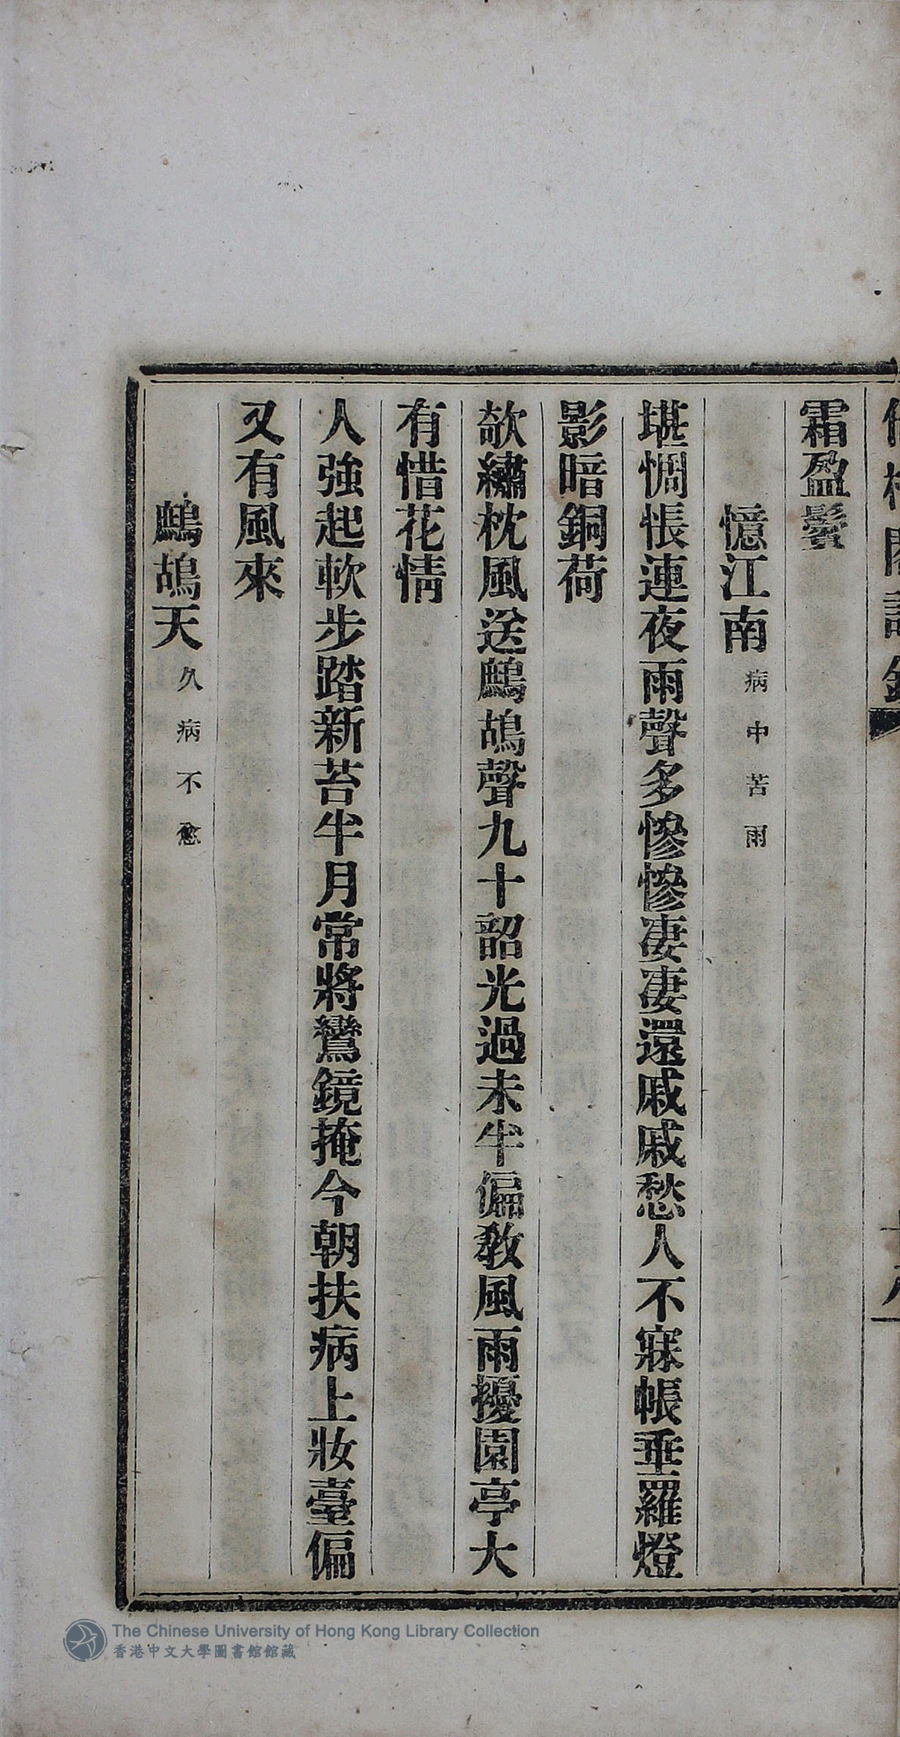 霜盈鬢
憶江南 病中苦雨
堪惆悵連夜雨聲多慘慘凄凄還戚戚愁人不寐帳垂羅燈
影暗銅荷
欹繡枕風送鷓鴣聲九十韶光過未半偏教風雨擾園亭大
有惜花情
人強起軟步踏新苔半月常將鸞鏡掩今朝扶病上妝臺偏
又有風來
鷓鴣天 久病不愈
The Chinese University of Hong Kong Library Collection
香港中文大學圖書館館藏